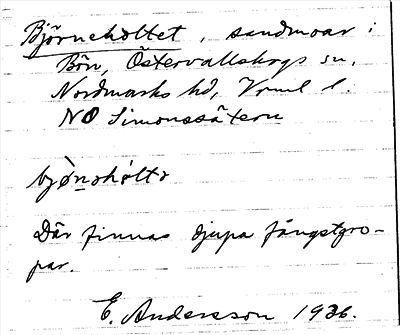 Björneholtet, sandmoar i
Bön, Östervallskogs sn,
Nordmarks hd, Vrml l.
NO Simonssätern
bjø̀nshólts
Där finnas djupa fångstgro-
par.
E. Andersson 1936.